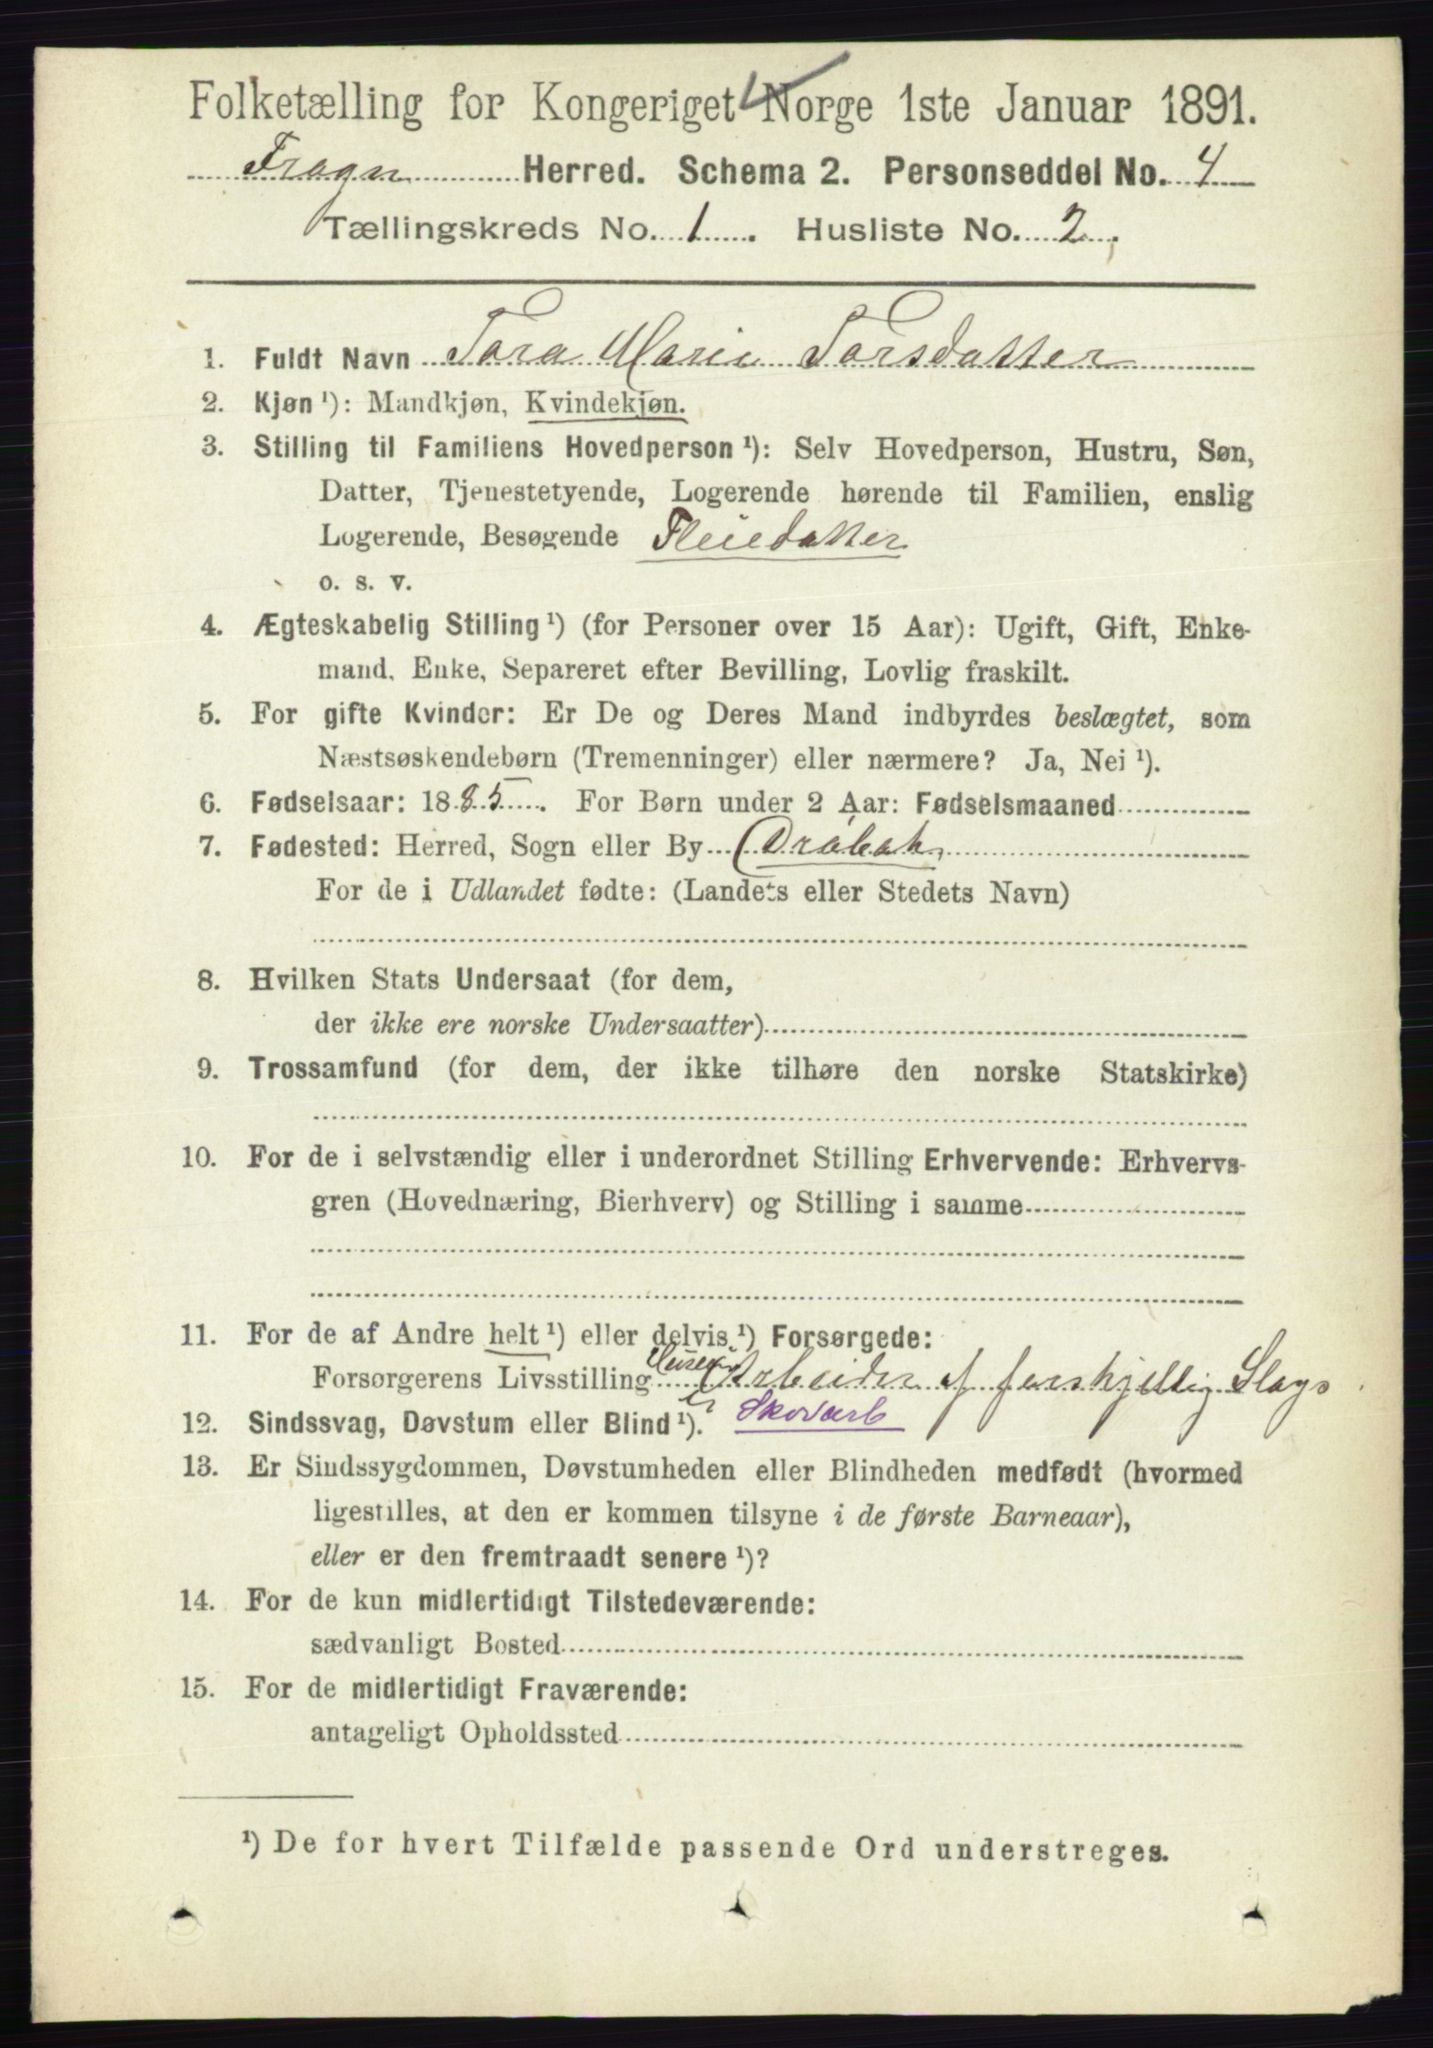 Folketælling for Kongeriget Norge 1ste Januar 1891.
Frogn Herred. Schema 2. Personseddel No. 4
Tællingskreds No. 1. Husliste No. 2.
1. Fuldt Navn Tora Marie Torsdatter
2. Kjøn ¹): Mandkjøn, Kvindekjøn.
3. Stilling til Familiens Hovedperson ¹): Selv Hovedperson, Hustru, Søn,
Datter, Tjenestetyende, Logerende hørende til Familien, enslig
Logerende, Besøgende Pleiedatter
o. s. v.
4. Ægteskabelig Stilling ¹) (for Personer over 15 Aar): Ugift, Gift, Enke-
mand, Enke, Separeret efter Bevilling, Lovlig fraskilt.
5. For gifte Kvinder: Er De og Deres Mand indbyrdes beslægtet, som
Næstsøskendebørn (Tremenninger) eller nærmere? Ja, Nei ¹).
6. Fødselsaar: 1885. For Børn under 2 Aar: Fødselsmaaned
7. Fødested: Herred, Sogn eller By Drøbak
For de i Udlandet fødte: (Landets eller Stedets Navn)
8. Hvilken Stats Undersaat (for dem,
der ikke ere norske Undersaatter)
9. Trossamfund (for dem, der ikke tilhøre den norske Statskirke)
10. For de i selvstændig eller i underordnet Stilling Erhvervende: Erhvervs-
gren (Hovednæring, Bierhverv) og Stilling i samme
11. For de af Andre helt ¹) eller delvis ¹) Forsørgede:
Forsørgerens Livsstilling Arbeider af forskjellig Slags
12. Sindssvag, Døvstum eller Blind ¹). Skovarb
13. Er Sindssygdommen, Døvstumheden eller Blindheden medfødt (hvormed
ligestilles, at den er kommen tilsyne i de første Barneaar),
eller er den fremtraadt senere ¹)?
14. For de kun midlertidigt Tilstedeværende:
sædvanligt Bosted
15. For de midlertidigt Fraværende:
antageligt Opholdssted
¹) De for hvert Tilfælde passende Ord understreges.